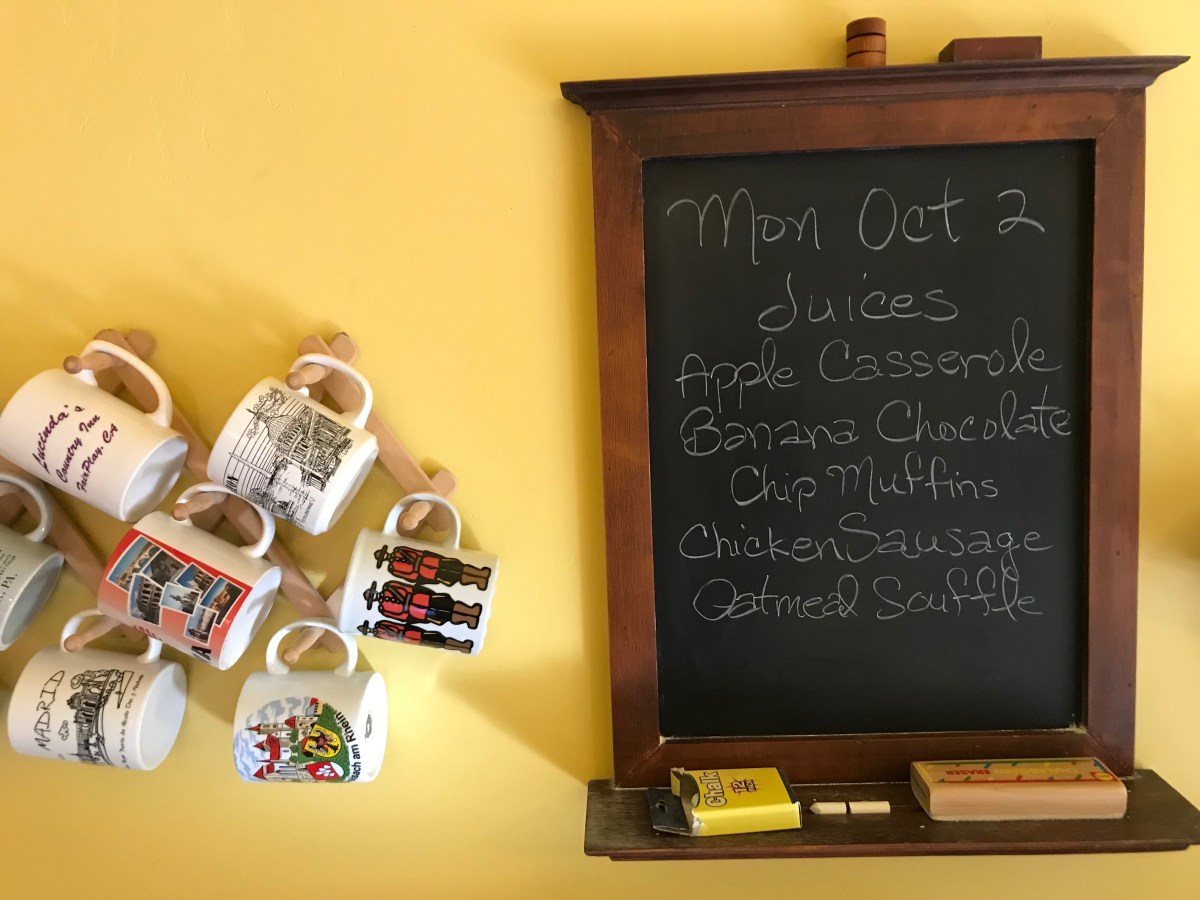 Mon Oct 2
Juices
Apple Casserole
Banana Chocolate
Chip Muffins
Chicken Sausage
Oatmeal Souffle
Chalk
12
ERASER
Lucinda's
Country Inn
FairPlay, CA
PA.
MADRID
am Rhein